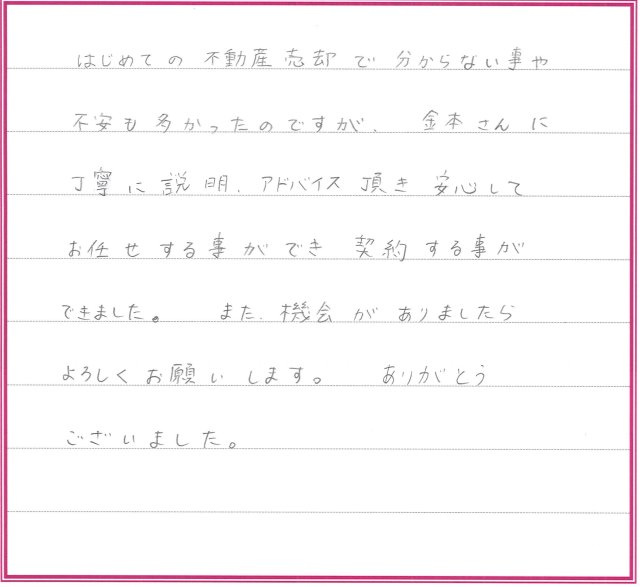 はじめての 不動産売却で 分からない事や
不安も多かったのですが、 金本さんに
丁寧に説明、アドバイス頂き 安心して
お任せする事ができ 契約する事が
できました。 また、機会がありましたら
よろしくお願いします。 ありがとう
ございました。